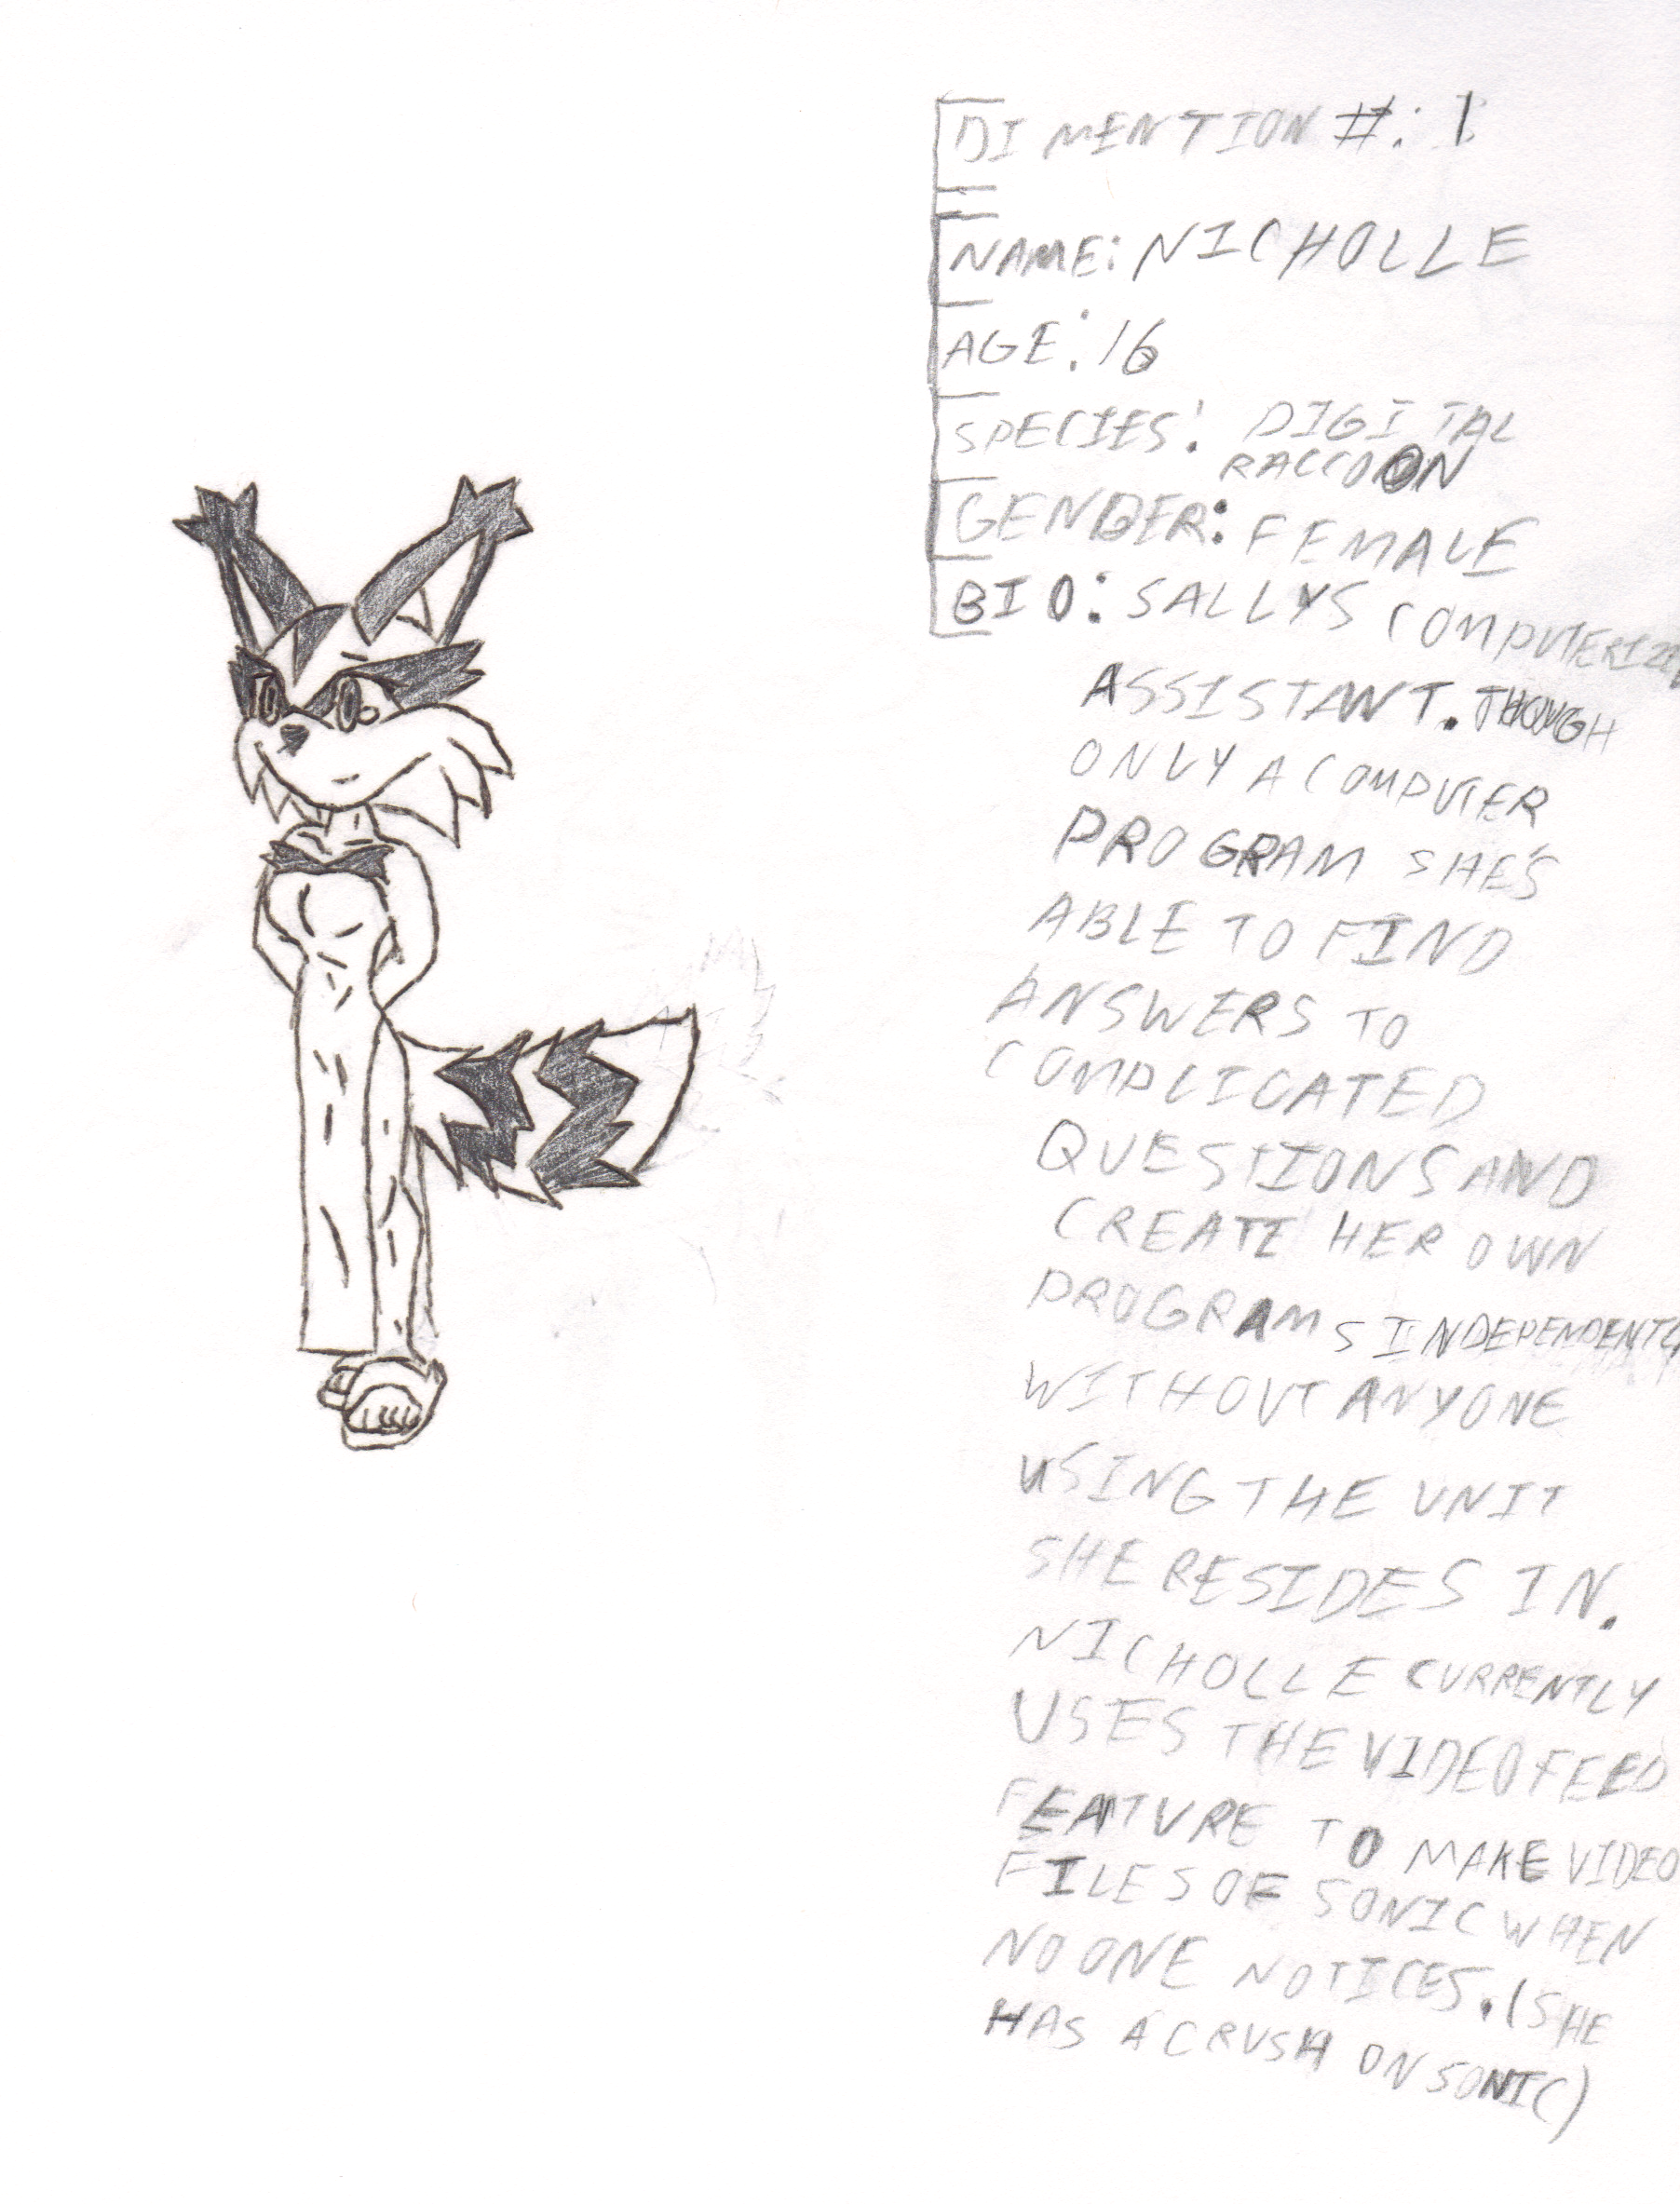 DIMENTION #: 1
NAME: NICHOLLE
AGE: 16
SPECIES: DIGITAL
RACCOON
GENDER: FEMALE
BIO: SALLYS COMPUTERIZED
ASSISTANT. THOUGH
ONLY A COMPUTER
PROGRAM SHE'S
ABLE TO FIND
ANSWERS TO
COMPLICATED
QUESTIONS AND
CREATE HER OWN
PROGRAMS INDEPENDENTLY
WITHOUT ANYONE
USING THE UNIT
SHE RESIDES IN.
NICHOLLE CURRENTLY
USES THE VIDEO FEED
FEATURE TO MAKE VIDEO
FILES OF SONIC WHEN
NO ONE NOTICES. (SHE
HAS A CRUSH ON SONIC)